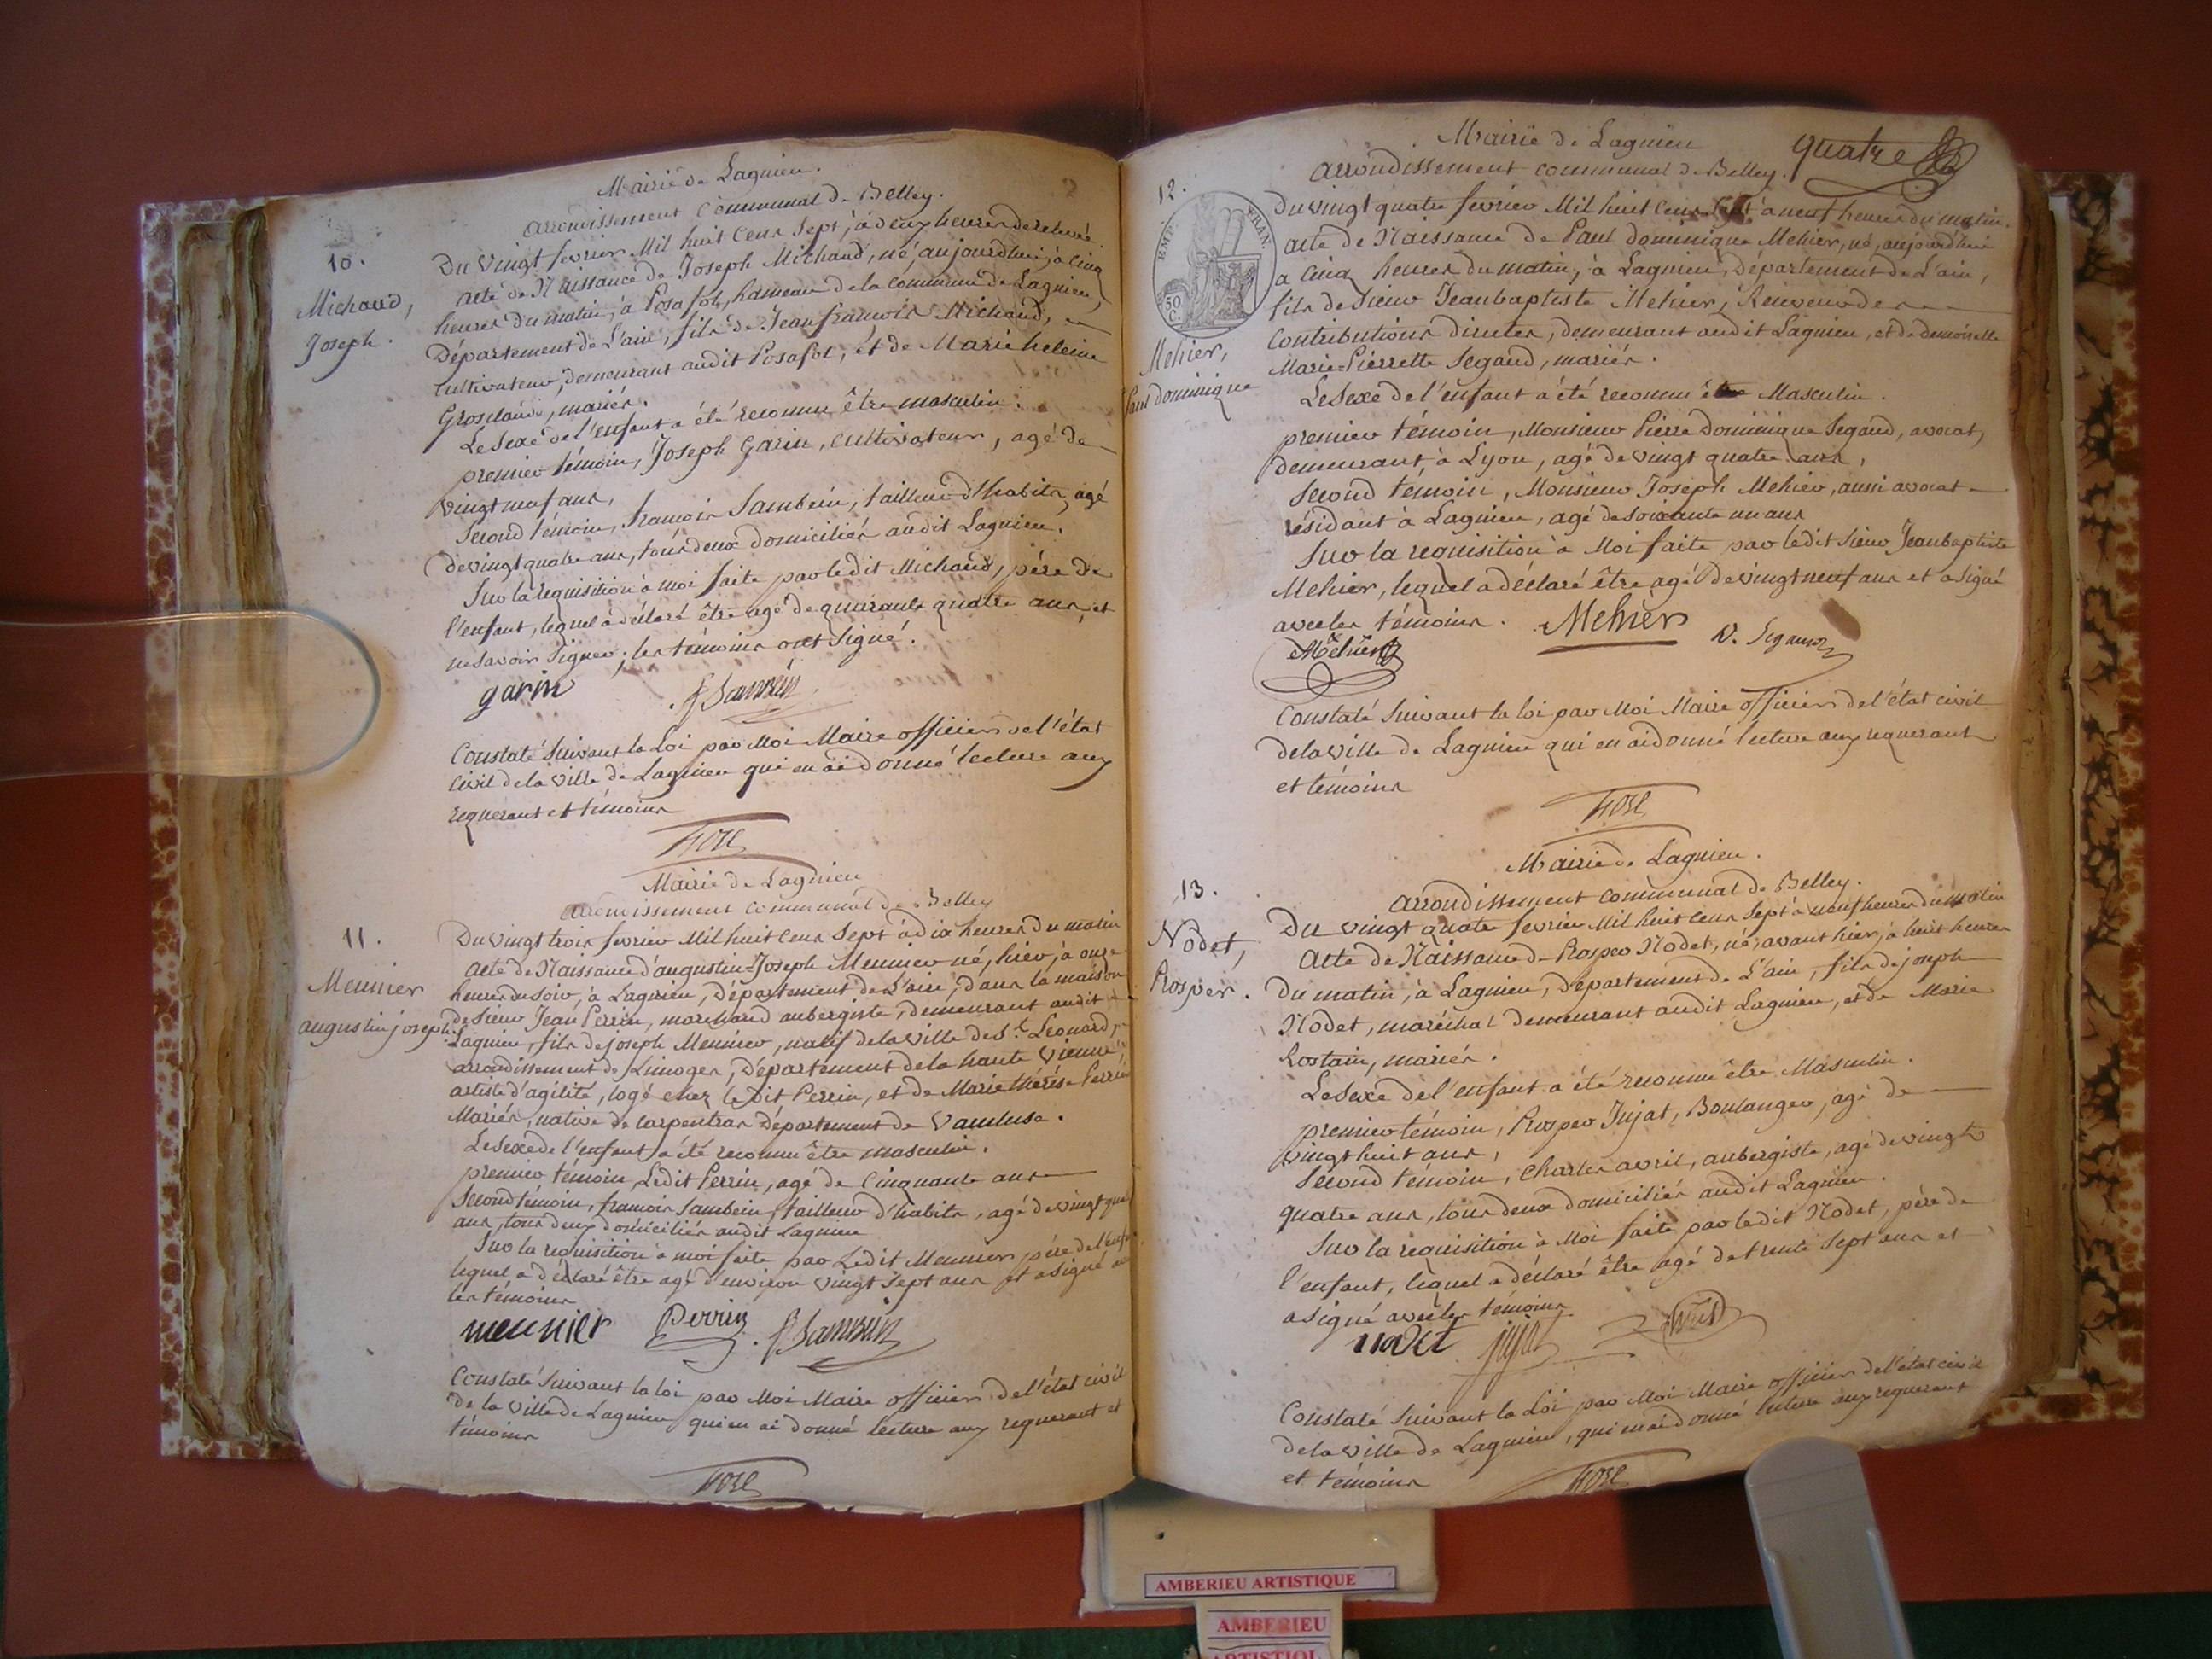 Mairie de Lagnieu.
arrondissement Communal de Belley.
10.
Michaud,
Joseph.
Du Vingt fevrier Mil huit Cens Sept, à deux heures de relevée.
acte de Naissance de Joseph Michaud, né aujourdhui, à cinq
heures du matin, à Posafol, hameau de la commune de Lagnieu,
Département de L'ain, fils de Jean françois Michaud,
Cultivateur, demeurant audit Posafol, et de Marie heleine
mariés.
Le Sexe de l'enfant a été reconnu être masculin.
premier témoin, Joseph Garin, cultivateur, agé de
vingt neuf ans,
Second témoin, françois Sambein, tailleur d'habits, agé
de vingt quatre ans, tous deux domiciliés audit Lagnieu.
Sur la requisition à moi faite par ledit Michaud, père de
l'enfant, lequel a déclaré être agé de quarante quatre ans, et
ne Savoir Signer, les témoins ont Signé.
garin
Constaté Suivant la Loi par Moi Maire officier de l'état
Civil de la Ville de Lagnieu qui en ai donné lecture aux
requerant et témoins
Mairie de Lagnieu
arrondissement communal de Belley
11.
Meunier
augustin joseph.
Du vingt trois fevrier Mil huit Cens Sept à dix heures du matin
acte de Naissance d'augustin-Joseph Meunier né, hier, à onze
heures du Soir, à Lagnieu, Département de L'ain, dans la maison
de Sieur Jean Perrin, marchand aubergiste, demeurant audit
Lagnieu, fils de Joseph Meunier, natif de la Ville de St. Leonard,
arrondissement de Limoges, Département de la haute Vienne,
artiste d'agilité, logé chez ledit Perrin, et de Marie thérèse Perrin
Mariés, native de Carpentras Département de Vaucluse.
Le Sexe de l'enfant a été reconnu être masculin.
premier témoin, Ledit Perrin, agé de Cinquante ans
Second témoin, françois Sambein, tailleur d'habits, agé de vingt
ans, tous deux domiciliés audit Lagnieu
Sur la requisition à moi faite par Ledit Meunier père de
lequel a déclaré être agé d'environ vingt Sept ans et a signé
les témoins
meunier Perrin
Constaté Suivant la loi par Moi Maire officier de l'état civil
de la Ville de Lagnieu qui en ai donné lecture aux requerant et
témoins
Mairie de Lagnieu
quatre
arrondissement communal de Belley.
12.
EMP. FRAN.
50 C.
Mehier,
Paul dominique
Du vingt quatre fevrier Mil huit Cens Sept à neuf heures du matin.
acte de Naissance de Paul dominique Mehier, né, aujourd'hui
a cinq heures du matin, à Lagnieu, Département de L'ain,
fils de Sieur Jean baptiste Mehier, Receveur des
Contributions directes, demeurant audit Lagnieu, et de demoiselle
Marie-Pierrette Segaud, mariés.
Le Sexe de l'enfant a été reconnu être Masculin.
premier témoin, Monsieur Pierre dominique Segaud, avocat,
demeurant à Lyon, agé de vingt quatre ans,
Second témoin, Monsieur Joseph Mehier, aussi avocat
résidant à Lagnieu, agé de soixante un ans
Sur la requisition à Moi faite par ledit Sieur Jean baptiste
Mehier, lequel a déclaré être agé de vingt neuf ans et a signé
avec les témoins. Mehier
Mehier
Constaté Suivant la loi par Moi Maire officier de l'état civil
de la Ville de Lagnieu qui en ai donné lecture aux requerant
et témoins
Mairie de Lagnieu.
arrondissement communal de Belley.
13.
Nodet,
Prosper.
Du vingt quatre fevrier Mil huit Cens Sept à neuf heures du matin
Acte de Naissance de Prosper Nodet, né, avant hier, à huit heures
Du matin, à Lagnieu, Département de L'ain, fils de joseph
Nodet, maréchal demeurant audit Lagnieu, et de Marie
Rostain, mariés.
Le Sexe de l'enfant a été reconnu être Masculin.
premier témoin, Prosper Jujat, Boulanger, agé de
vingt huit ans,
Second témoin, Charles avril, aubergiste, agé de vingt
quatre ans, tous deux domiciliés audit Lagnieu.
Sur la requisition à Moi faite par ledit Nodet, père de
l'enfant, lequel a déclaré être agé de trente Sept ans et
a signé avec les témoins
nodet jujat
Constaté Suivant la Loi par Moi Maire officier de l'état civil
de la Ville de Lagnieu, qui en ai donné lecture aux requerant
et témoins
AMBERIEU ARTISTIQUE
AMBERIEU